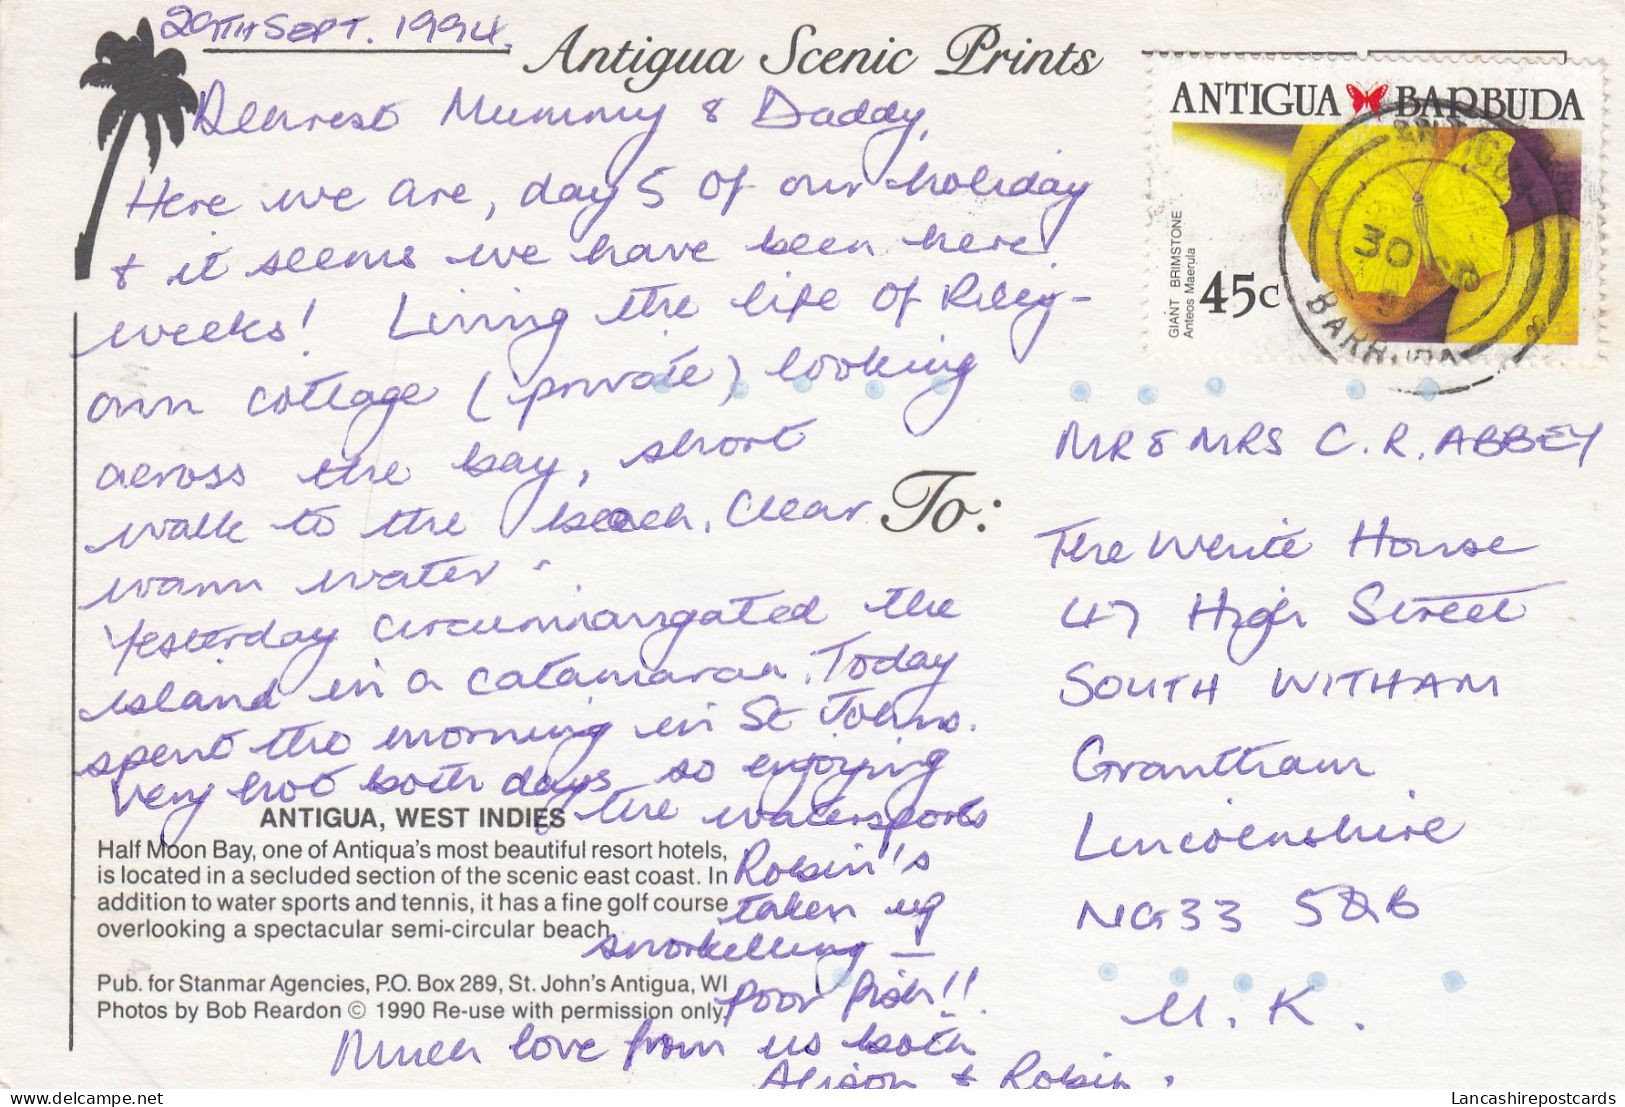 29TH SEPT. 1994.
Antigua Scenic Prints
Dearest Mummy & Daddy,
Here we are, day 5 of our holiday
& it seems we have been here
weeks! Living the life of Riley -
own cottage (private) looking
across the bay, short
walk to the beach. Clear
warm water.
Yesterday circumnavigated the
island in a catamaran. Today
spent the morning in St Johns.
Very hot both days so enjoying
the watersports
Robin's
taken up
snorkelling -
poor fish!!
Much love from us both
Alison & Robin.
ANTIGUA, WEST INDIES
Half Moon Bay, one of Antiqua's most beautiful resort hotels,
is located in a secluded section of the scenic east coast. In
addition to water sports and tennis, it has a fine golf course
overlooking a spectacular semi-circular beach.
Pub. for Stanmar Agencies, P.O. Box 289, St. John's Antigua, WI
Photos by Bob Reardon © 1990 Re-use with permission only.
ANTIGUA BARBUDA
GIANT BRIMSTONE
Anteos Maerula
45c
30
To:
MR & MRS C. R. ABBEY
The White House
47 High Street
SOUTH WITHAM
Grantham
Lincolnshire
NG33 5QB
U.K.
www.delcampe.net
Lancashirepostcards